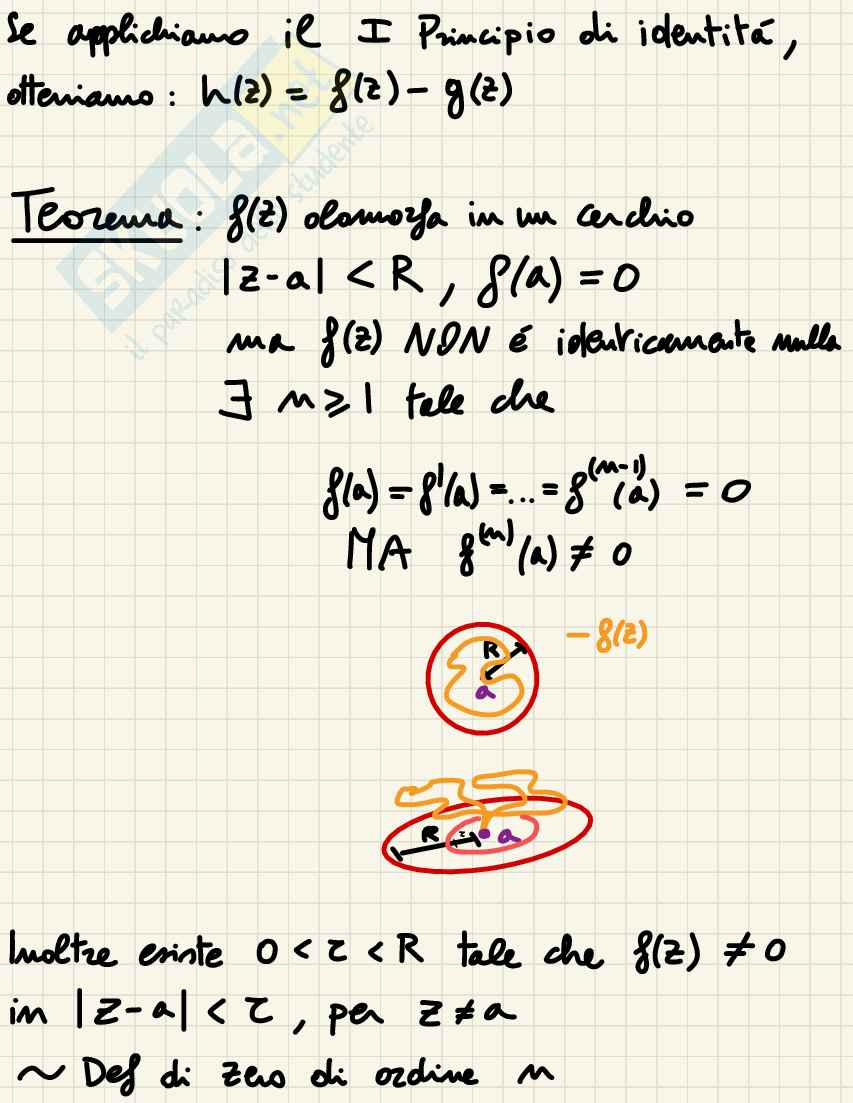 Se applichiamo il I Principio di identitá,
otteniamo: h(z) = f(z) - g(z)
Teorema: f(z) olomorfa in un cerchio
|z-a| < R, f(a) = 0
ma f(z) NON é identicamente nulla
∃ n ≥ 1 tale che
f(a) = f'(a) = ... = f^(n-1)(a) = 0
MA f^(n)(a) ≠ 0
- f(z)
R
a
R r a
Inoltre esiste 0 < r < R tale che f(z) ≠ 0
in |z-a| < r, per z ≠ a
~ Def di zero di ordine n
SKUOLA.net
il paradiso dello studente